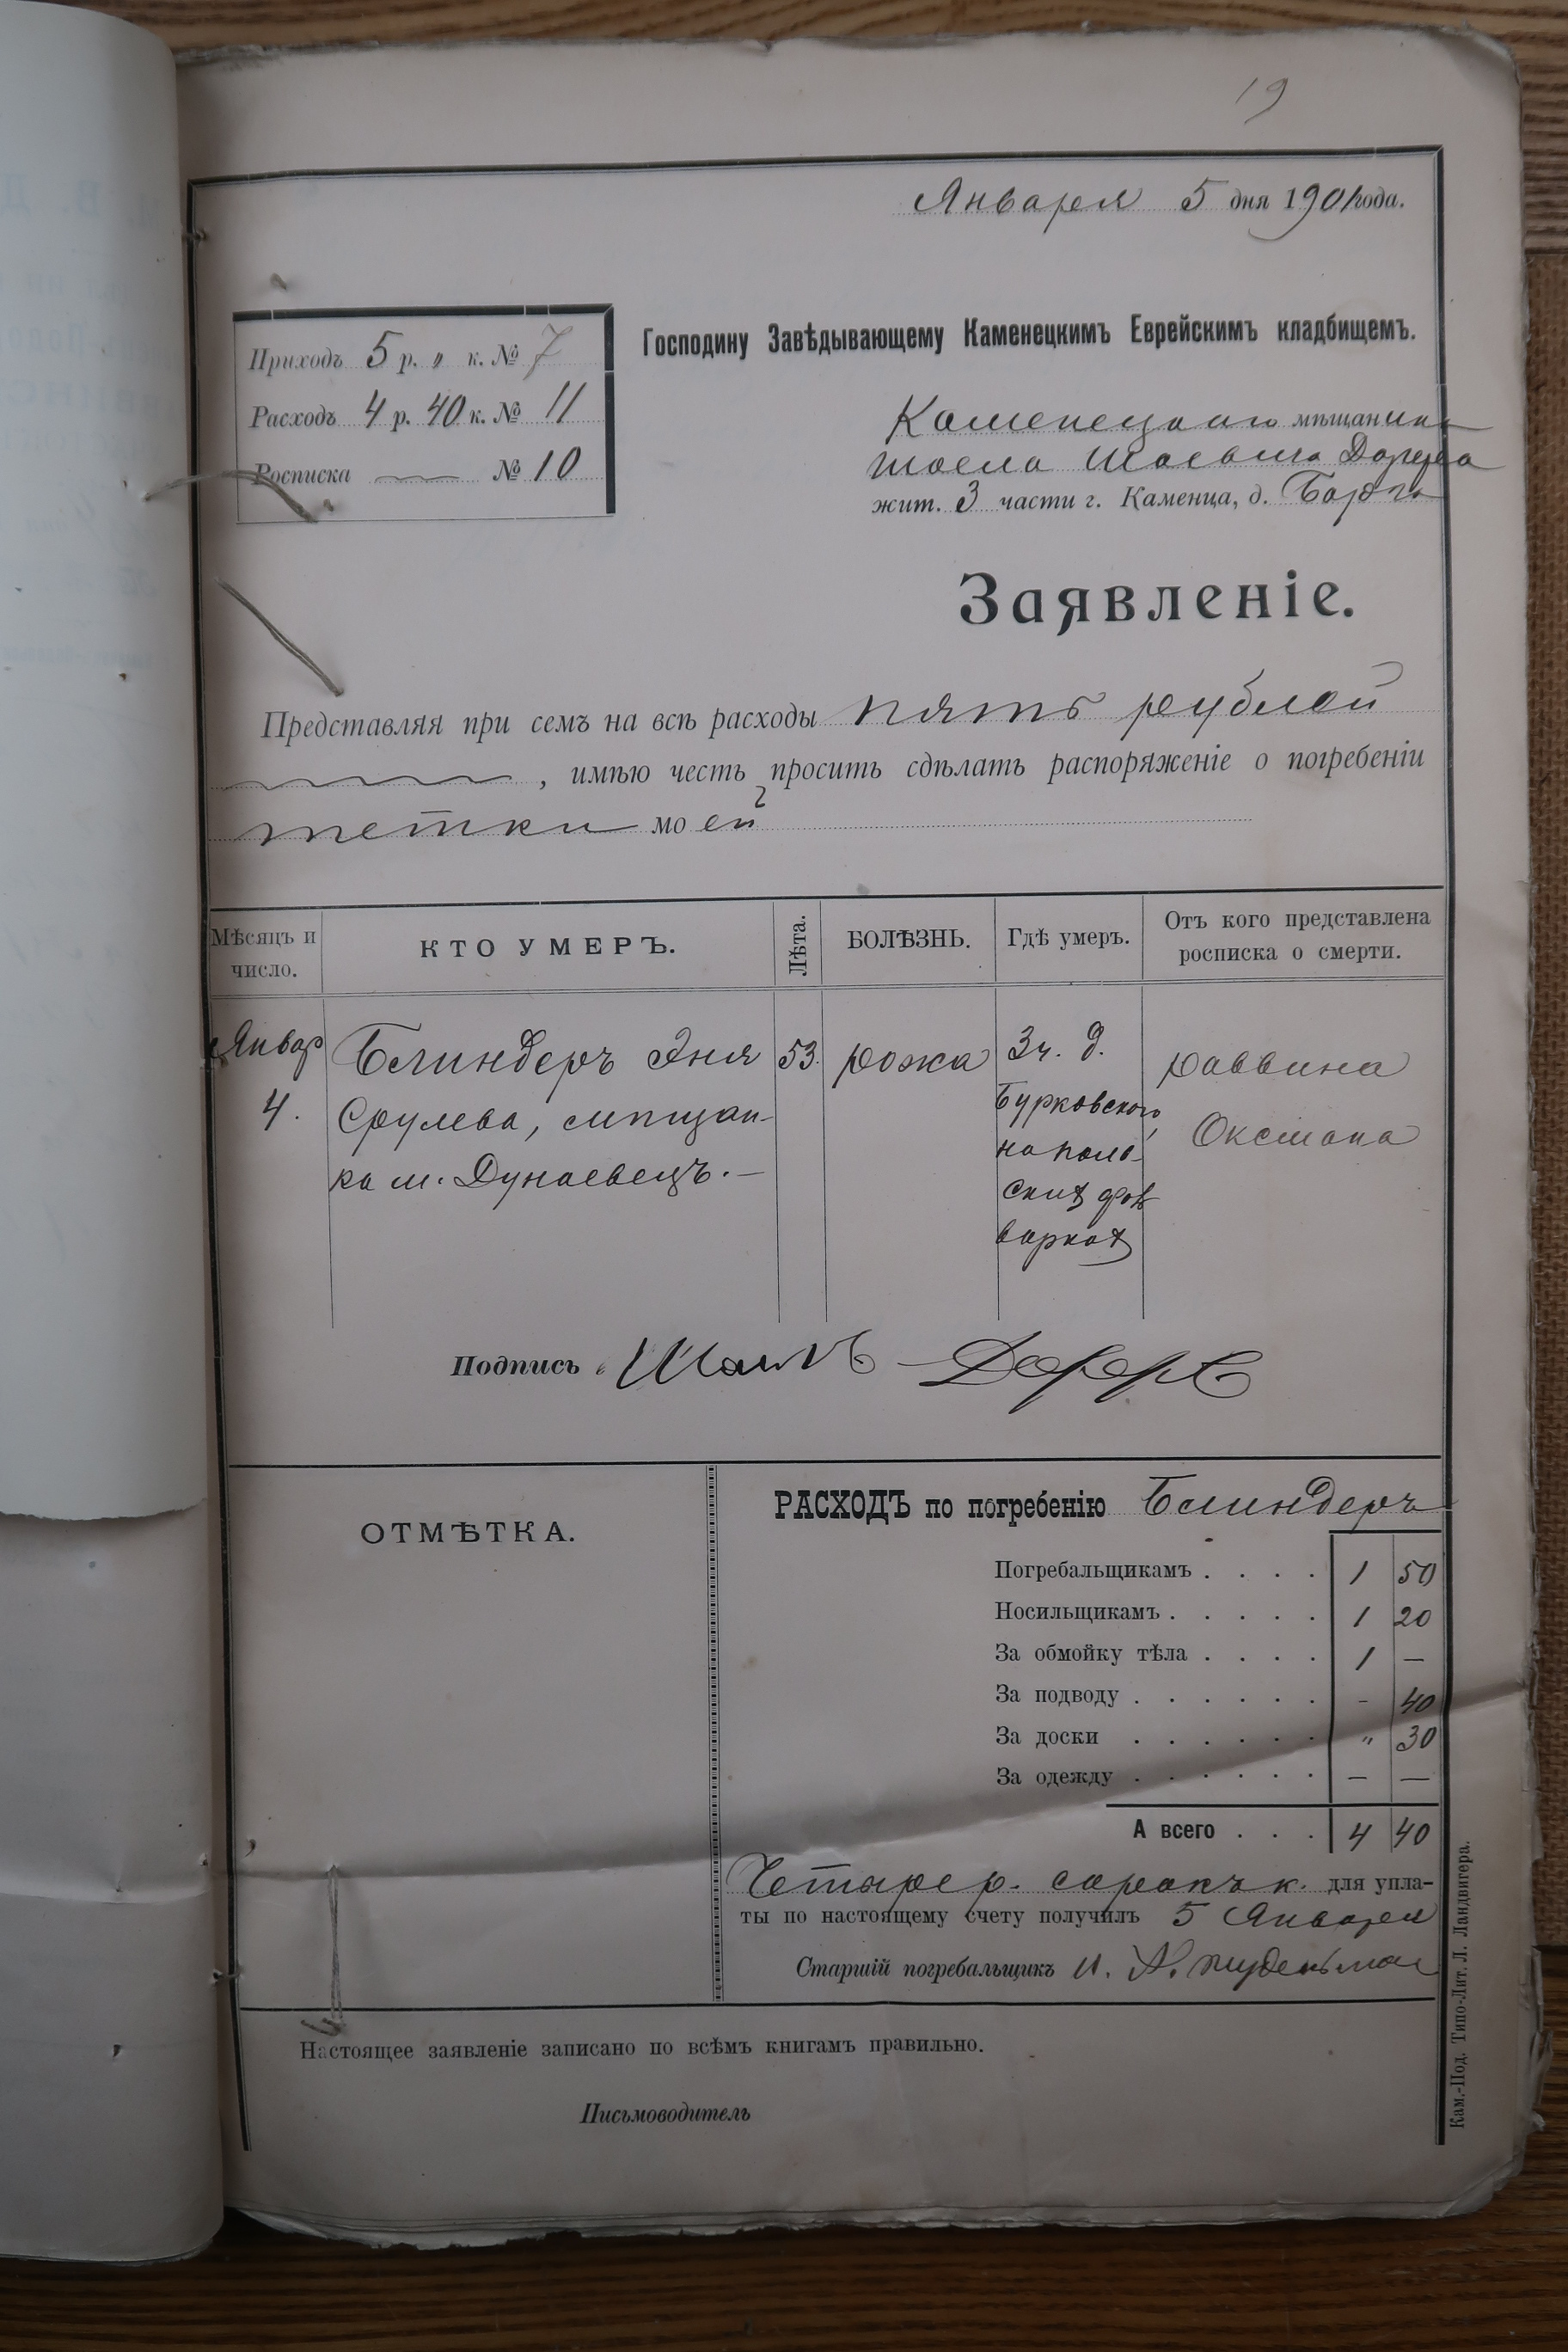 19
Января 5 дня 1901 года.
Приходъ 5 р. „ к. № 7
Расходъ 4 р. 40 к. № 11
Росписка № 10
Господину Завѣдывающему Каменецкимъ Еврейскимъ кладбищемъ.
Каменецкаго мѣщанина
жит. 3 части г. Каменца, д.
Заявленіе.
Представляя при семъ на всѣ расходы пять рублей
, имѣю честь просить сдѣлать распоряженіе о погребеніи
тетки моей
Мѣсяцъ и число. КТО УМЕРЪ. Лѣта. БОЛѢЗНЬ. Гдѣ умеръ. Отъ кого представлена росписка о смерти.
Январ 4. Блиндеръ Эня 53. рожа 3 ч. д. раввина
Срулева, мѣщан- Бурковского, Оксмана
ка м. Дунаевецъ. — на поль-
ских фоль
варках
Подпись
РАСХОДЪ по погребенію Блиндеръ
ОТМѢТКА.
Погребальщикамъ . . . . 1 50
Носильщикамъ . . . . . 1 20
За обмойку тѣла . . . . 1 —
За подводу . . . . . . - 40
За доски . . . . . . „ 30
За одежду . . . . . . — —
А всего . . . 4 40
Четыре р. сорокъ к. для упла-
ты по настоящему счету получилъ 5 Января
Старшій погребальщикъ
Настоящее заявленіе записано по всѣмъ книгамъ правильно.
Письмоводитель
Кам.-Под. Типо-Лит. Л. Ландвигера.